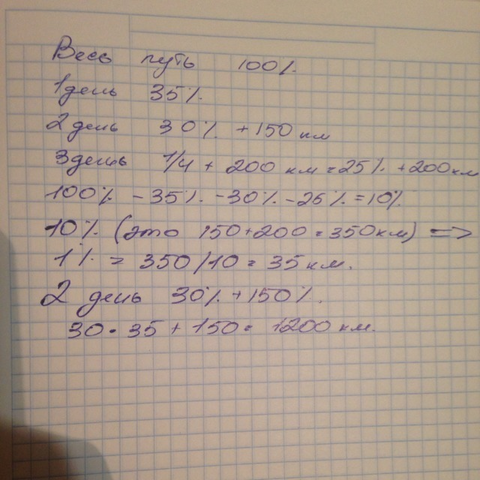 Весь путь 100%
1 день 35%
2 день 30% + 150 км
3 день 1/4 + 200 км = 25% + 200 км
100% - 35% - 30% - 25% = 10%
10% (это 150 + 200 = 350 км) =>
1% = 350/10 = 35 км.
2 день 30% + 150%.
30 • 35 + 150 = 1200 км.